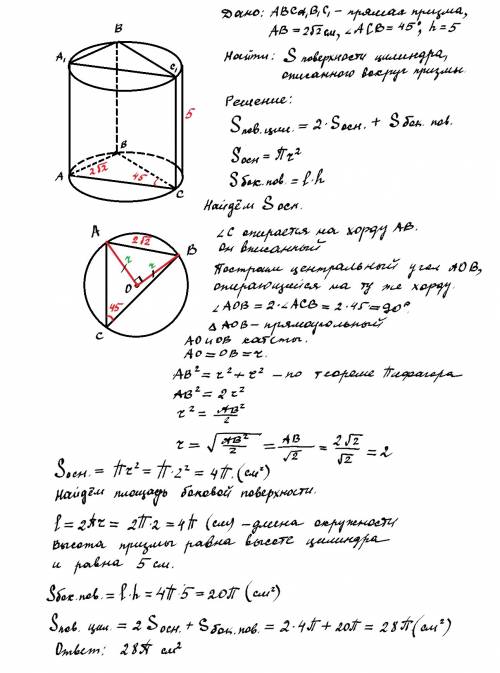 Дано: ABCA₁B₁C₁ - прямая призма,
AB = 2√2 см, ∠ACB = 45°, h = 5
Найти: S поверхности цилиндра,
описанного вокруг призмы.
Решение:
Sпов.цил. = 2·Sосн. + Sбок. пов.
Sосн = πr²
Sбок.пов. = l·h
Найдём Sосн.
B
A₁
C₁
5
B
2√2
A
45
C
∠C опирается на хорду AB.
он вписанный
Построим центральный угол AOB,
опирающийся на ту же хорду.
∠AOB = 2·∠ACB = 2·45 = 90°.
△AOB - прямоугольный
AO и OB катеты.
AO = OB = r.
A
2√2
B
r
r
O
45
C
AB² = r² + r² - по теореме Пифагора
AB² = 2r²
r² = AB²/2
r = √(AB²/2) = AB/√2 = 2√2/√2 = 2
Sосн. = πr² = π·2² = 4π (см²)
Найдём площадь боковой поверхности.
l = 2πr = 2π·2 = 4π (см) - длина окружности
Высота призмы равна высоте цилиндра
и равна 5 см.
Sбок.пов. = l·h = 4π·5 = 20π (см²)
Sпов. цил. = 2Sосн. + Sбок.пов. = 2·4π + 20π = 28π (см²)
Ответ: 28π см²